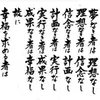 夢なき者は理想なし
理想なき者は信念なし
信念なき者は計画なし
計画なき者は実行なし
実行なき者は成果なし
成果なき者は幸福なし
故に
幸福を求める者は